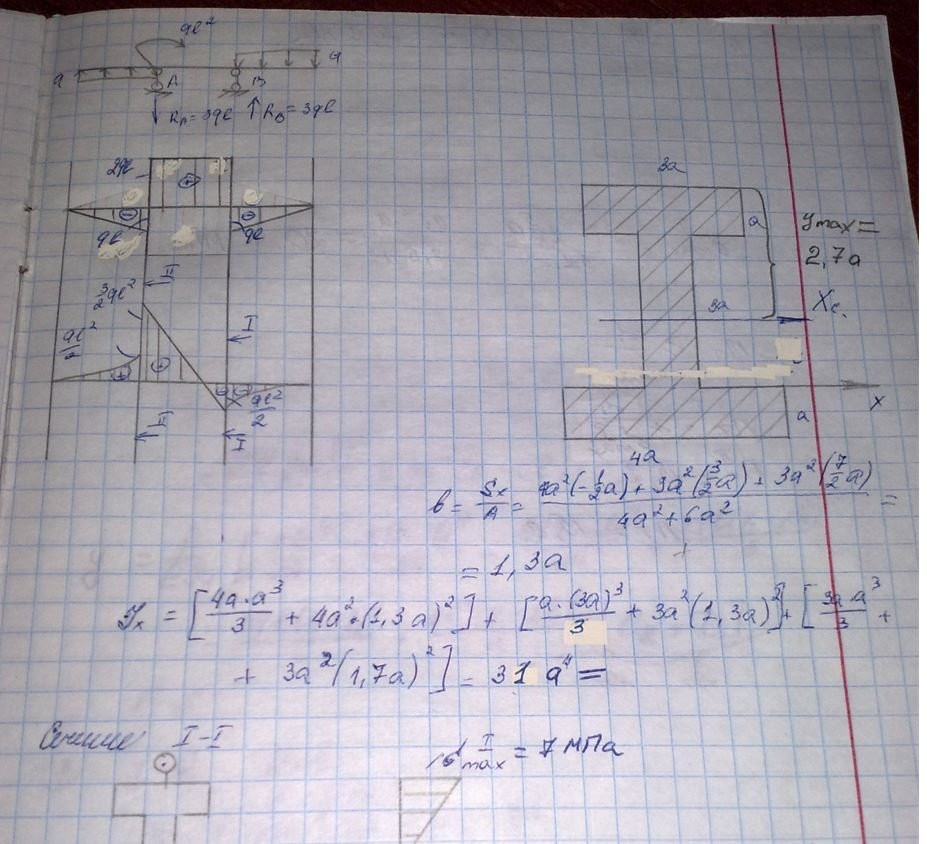 ql²
q A B q
R_A = 3ql R_B = 3ql
2ql +
− −
ql ql
II
3/2 ql²
I
ql²/2
+ +
ql²/2
II I
3a
a
y max =
2,7a
3a X c.
x
a
4a
b = Sx/A = (4a²(-1/2 a) + 3a²(3/2 a) + 3a²(7/2 a)) / (4a² + 6a²) =
+
= 1,3a
Jx = [4a·a³/3 + 4a²·(1,3a)²] + [a·(3a)³/3 + 3a²(1,3a)²] + [3a·a³/3 +
+ 3a²(1,7a)²] = 31a⁴ =
Сечение I-I
σ^I max = 7 МПа